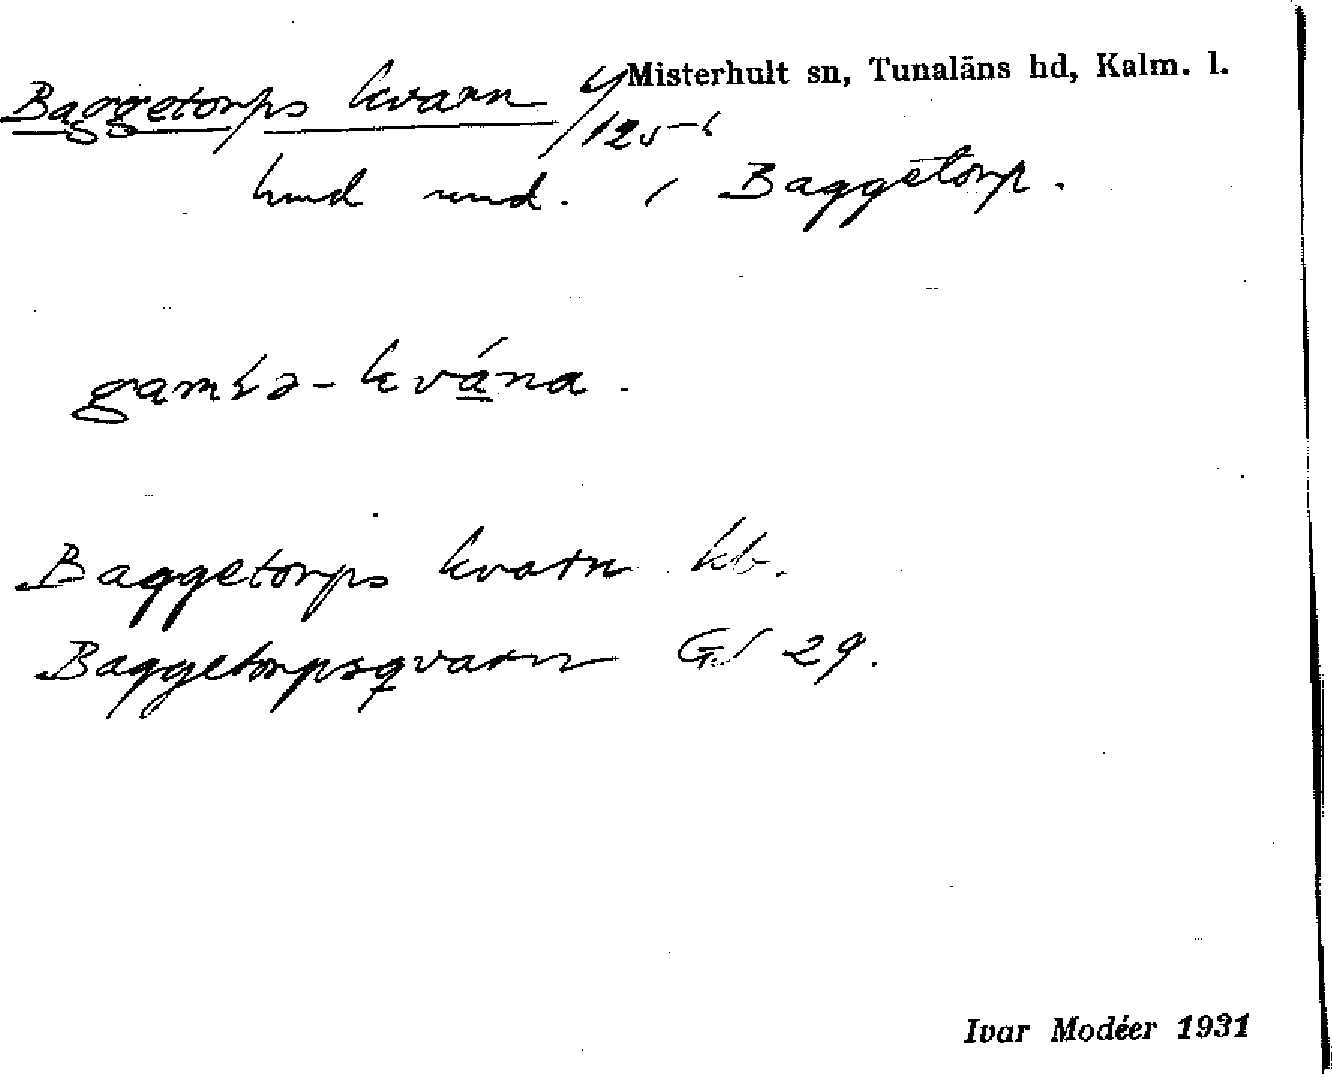 Baggetorps kvarn Misterhult sn, Tunaläns hd, Kalm. l.
und. Baggetorp.
kvána.
Baggetorps kvarn kb.
Baggetorpsqvarn GS 29.
Ivar Modéer 1931